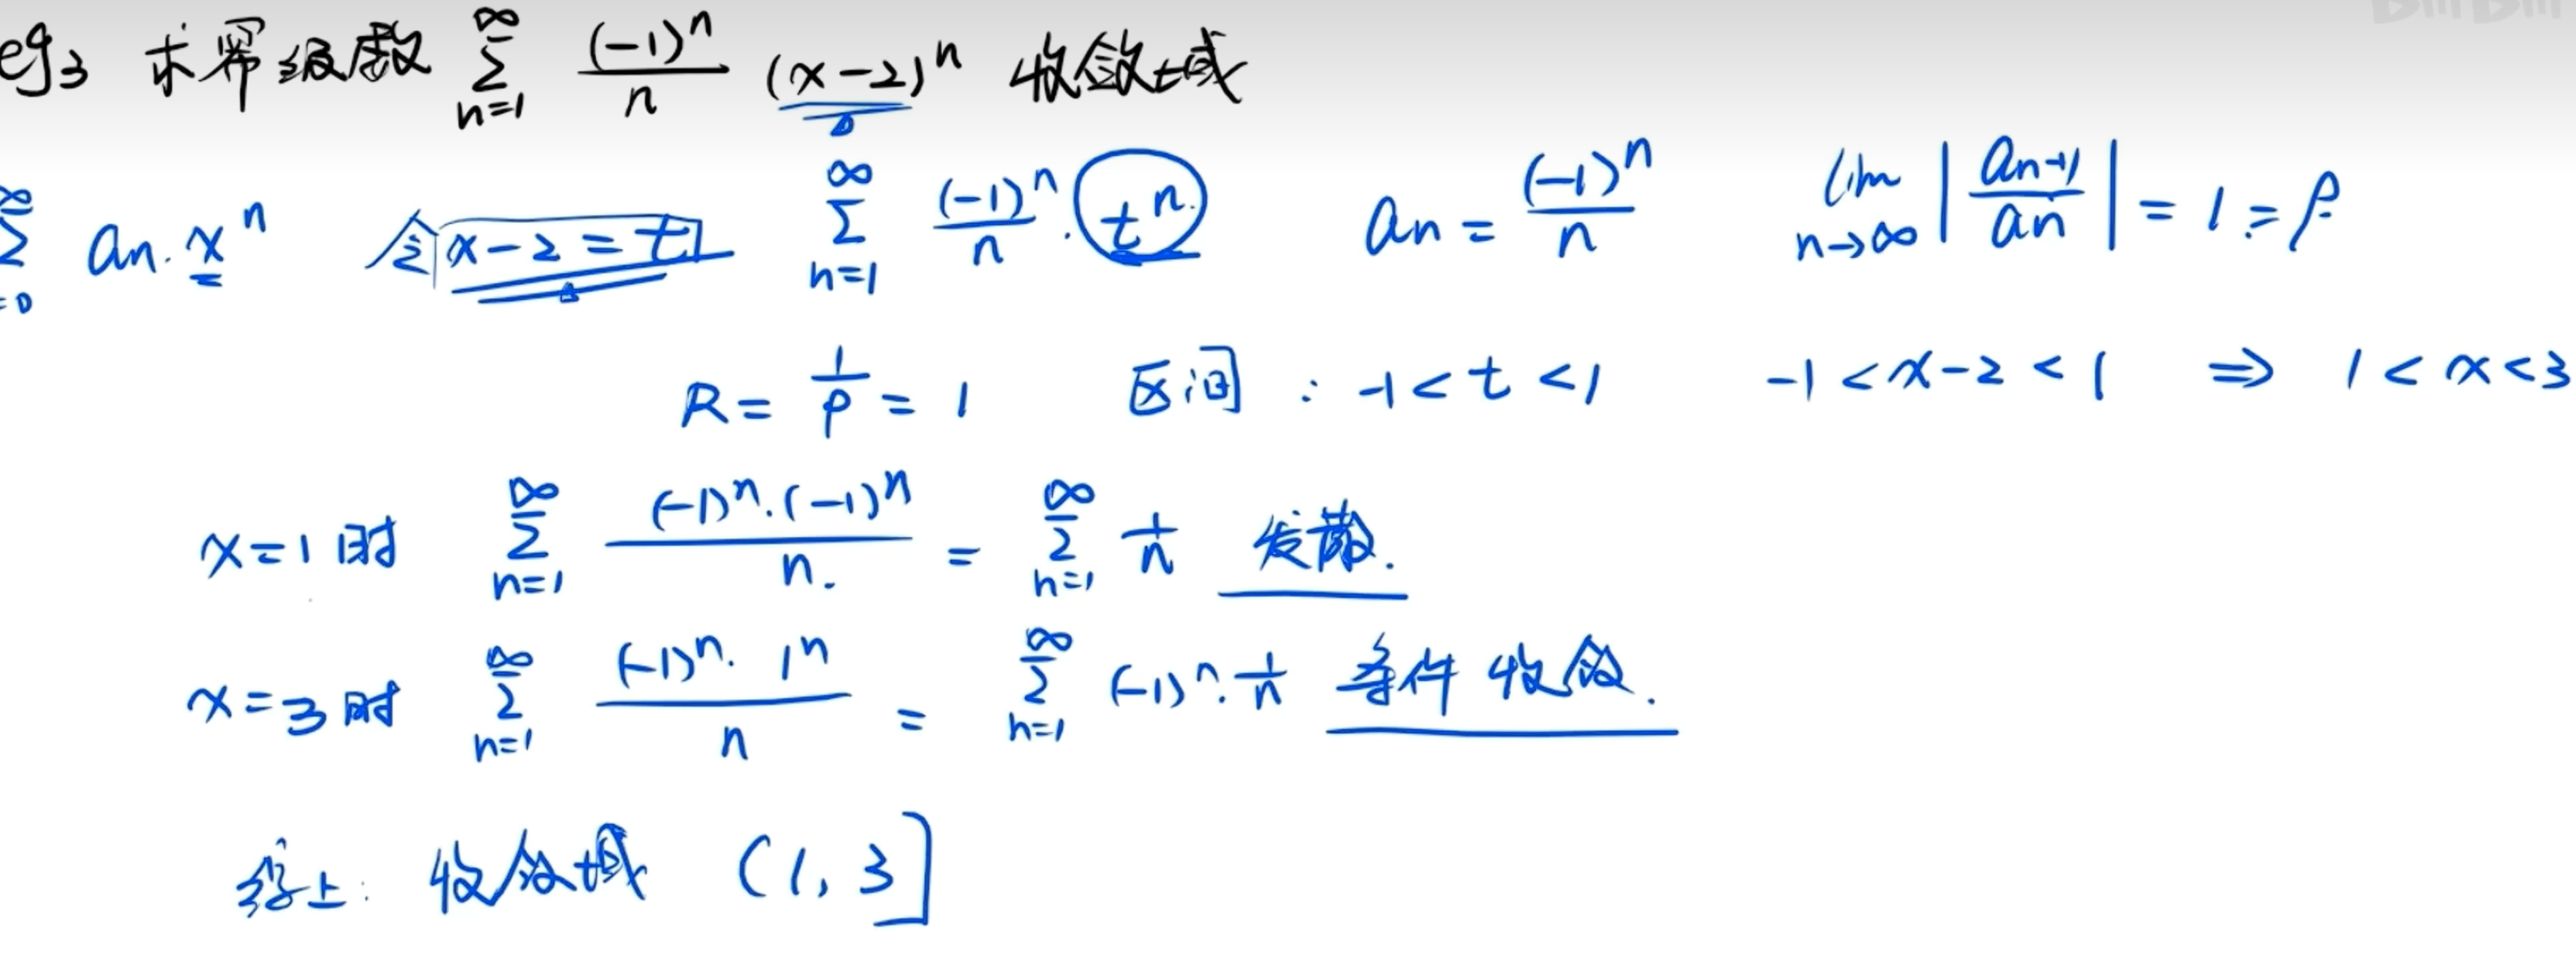 eg3 求幂级数 ∑_{n=1}^{∞} \frac{(-1)^n}{n} (x-2)^n 收敛域
∑_{=0}^{∞} an·x^n 令 x-2=t ∑_{n=1}^{∞} \frac{(-1)^n}{n}·t^n. an = \frac{(-1)^n}{n} lim_{n→∞} |\frac{an+1}{an}| = 1 = ρ
R = \frac{1}{ρ} = 1 区间: -1<t<1 -1<x-2<1 ⇒ 1<x<3
x=1时 ∑_{n=1}^{∞} \frac{(-1)^n·(-1)^n}{n.} = ∑_{n=1}^{∞} \frac{1}{n} 发散.
x=3时 ∑_{n=1}^{∞} \frac{(-1)^n·1^n}{n} = ∑_{n=1}^{∞} (-1)^n·\frac{1}{n} 条件收敛.
综上: 收敛域 (1, 3]